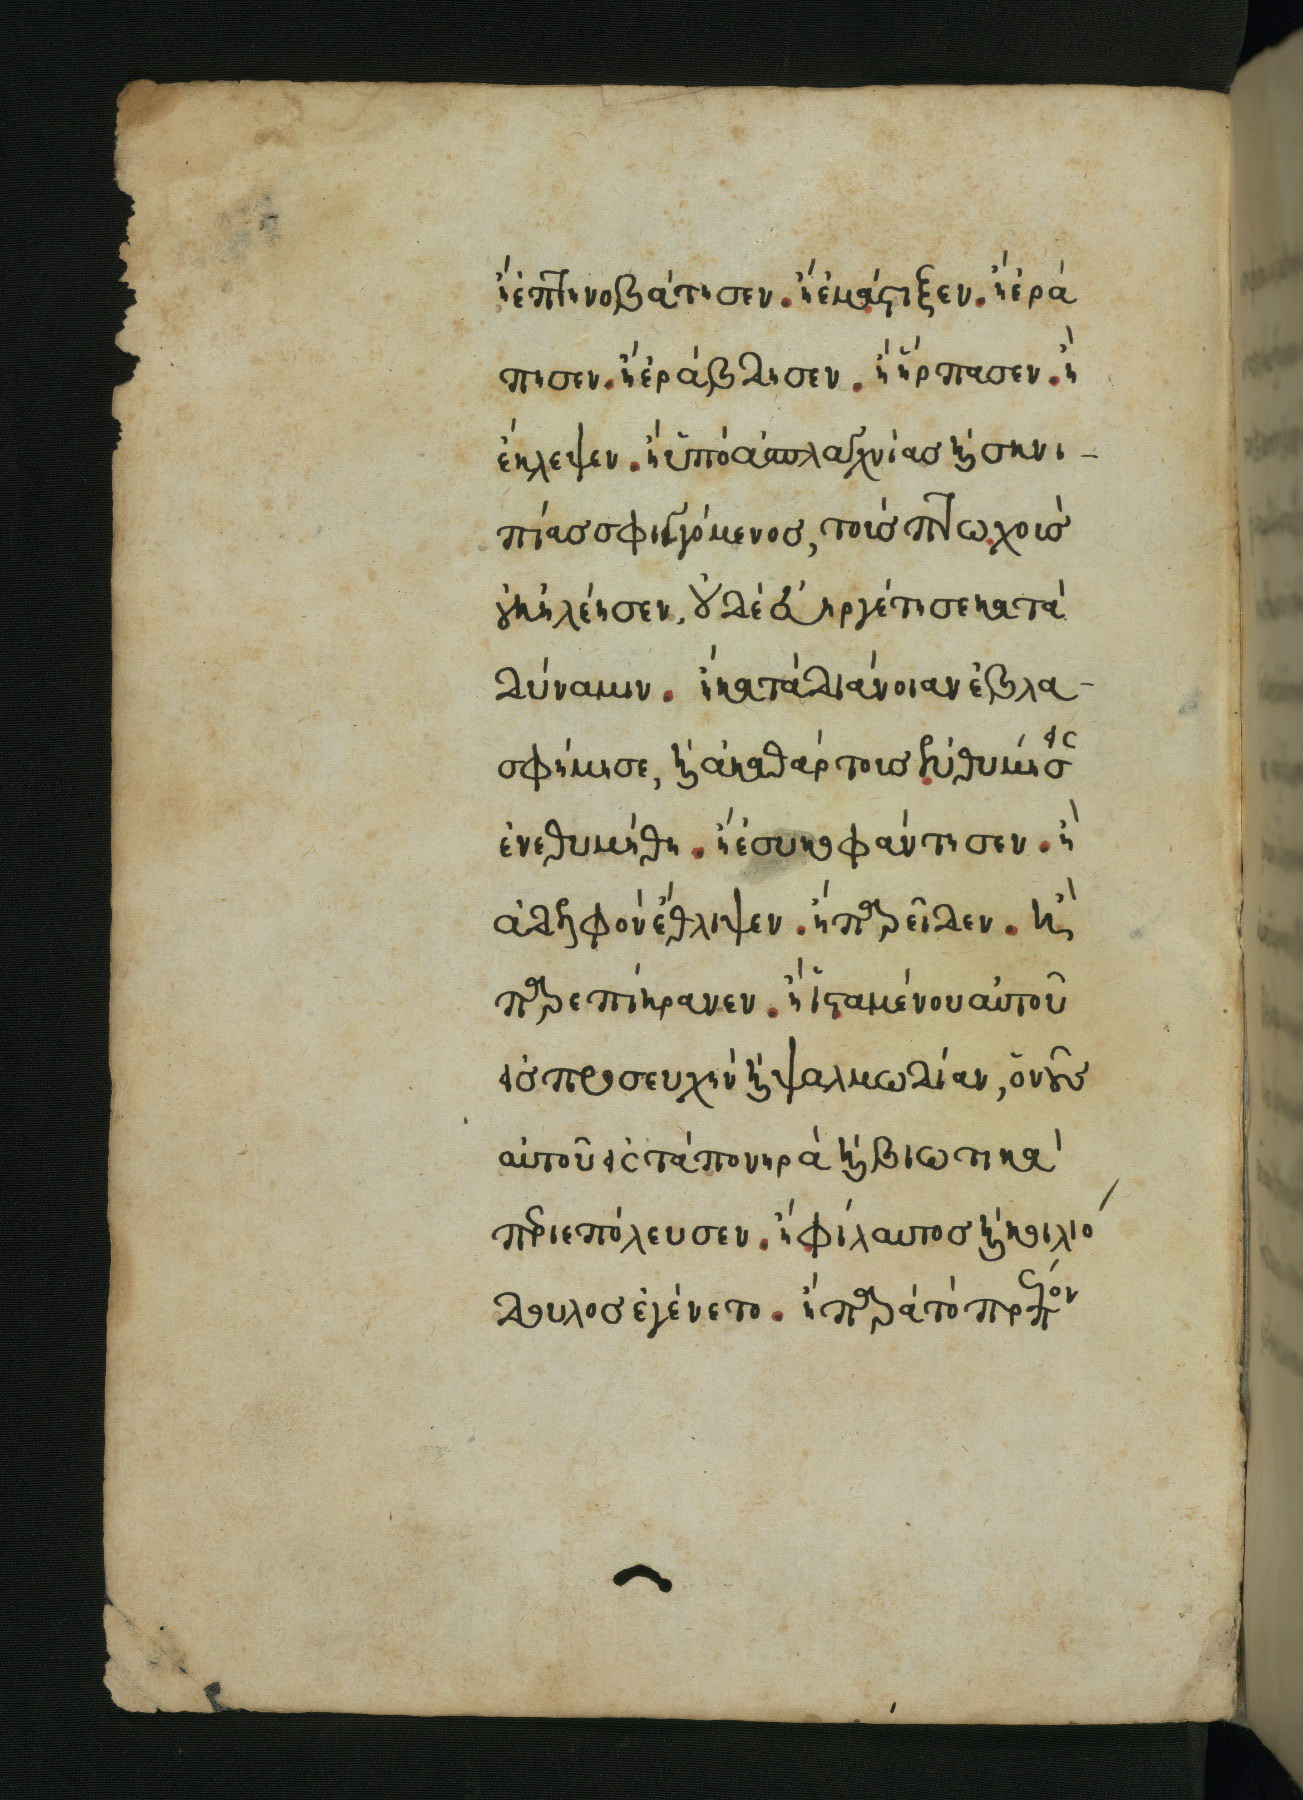 ἢ ἐκτηνοβάτησεν. ἢ ἐμάστιξεν. ἢ ἐρά
πησεν. ἢ ἐράβδησεν. ἢ ἥρπασεν. ἢ
ἔκλεψεν. ἢ ὑπὸ ἀσπλαγχνίας καὶ σκνι-
πίας σφιγγόμενος, τοῖς πτωχοῖς
οὐκ ἠλέησεν, οὐδὲ εὐηργέτησε κατὰ
δύναμιν. ἢ κατὰ διάνοιαν ἐβλα-
σφήμησε, καὶ ἀκαθάρτοις ἐνθυμήσεις
ἐνεθυμήθη. ἢ ἐσυκοφάντησεν. ἢ
ἀδελφὸν ἔθλιψεν. ἢ παρεῖδεν. ἢ
παρεπίκρανεν. ἢ ἱσταμένου αὐτοῦ
εἰς προσευχὴν καὶ ψαλμωδίαν, ὁ νοῦς
αὐτοῦ εἰς τὰ πονηρὰ καὶ βιωτικὰ
περιεπόλευσεν. ἢ φίλαυτος καὶ κοιλιό
δουλος ἐγένετο. ἢ παρὰ τὸ πρέπον